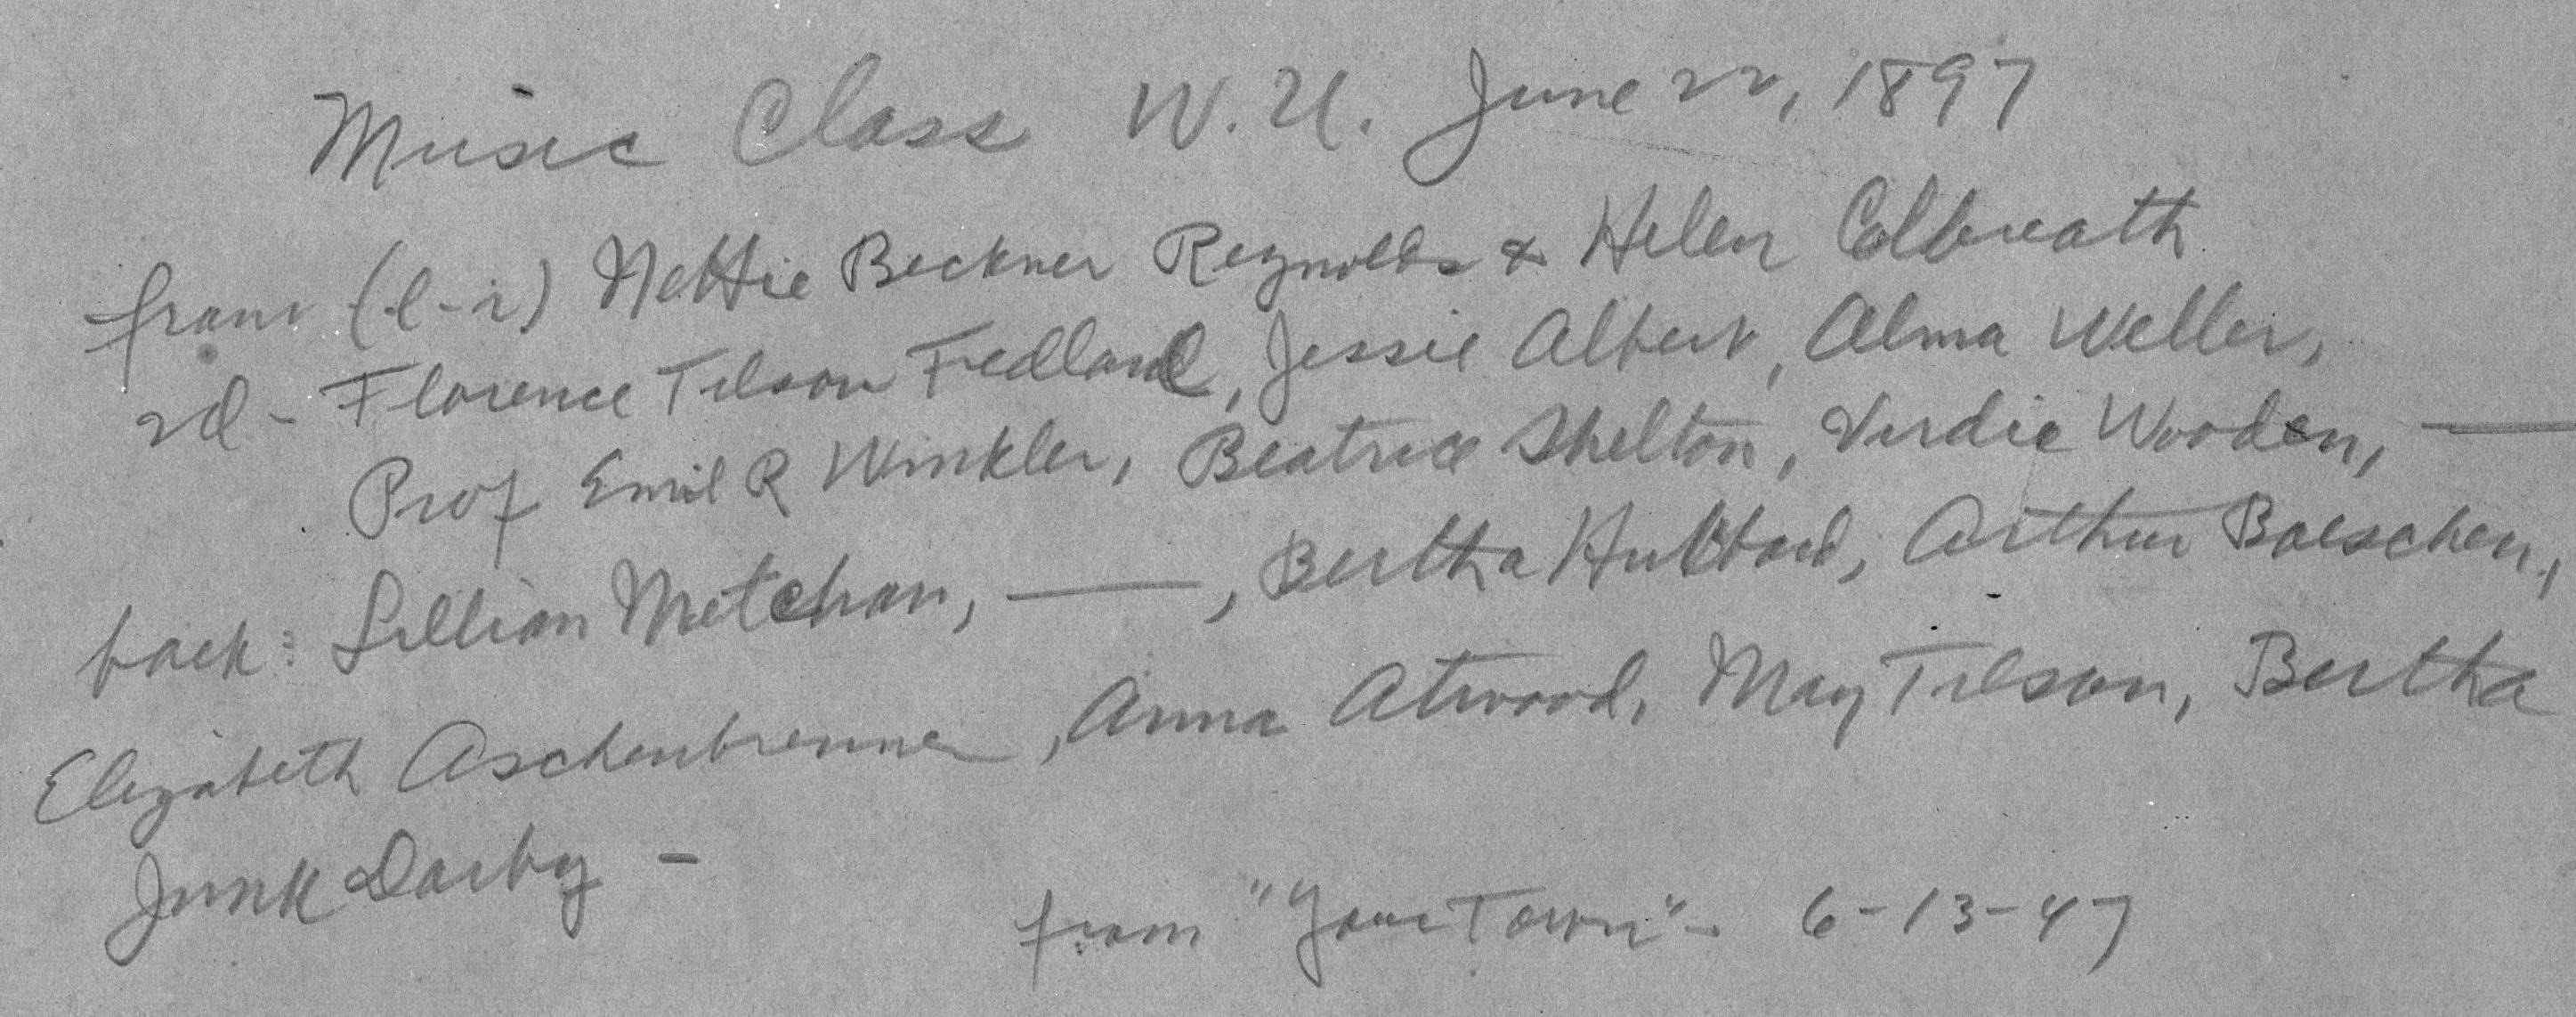 Music Class W.U. June 22, 1897
front (l-r) Nettie Beckner Reynolds & Helen Colbreath
2d - Florence Tilson Fedland, Jessie Albert, Alma Weller,
Prof Emil R Winkler, Beatrice Shelton, Verdie Wooden, —
back: Lillian Metchan, —, Bertha Hubbard, Arthur Boeschen,
Elizabeth Aschenbrenner, Anna Atwood, May Tilson, Bertha
Junk Darby -
from "Your Town" - 6-13-47